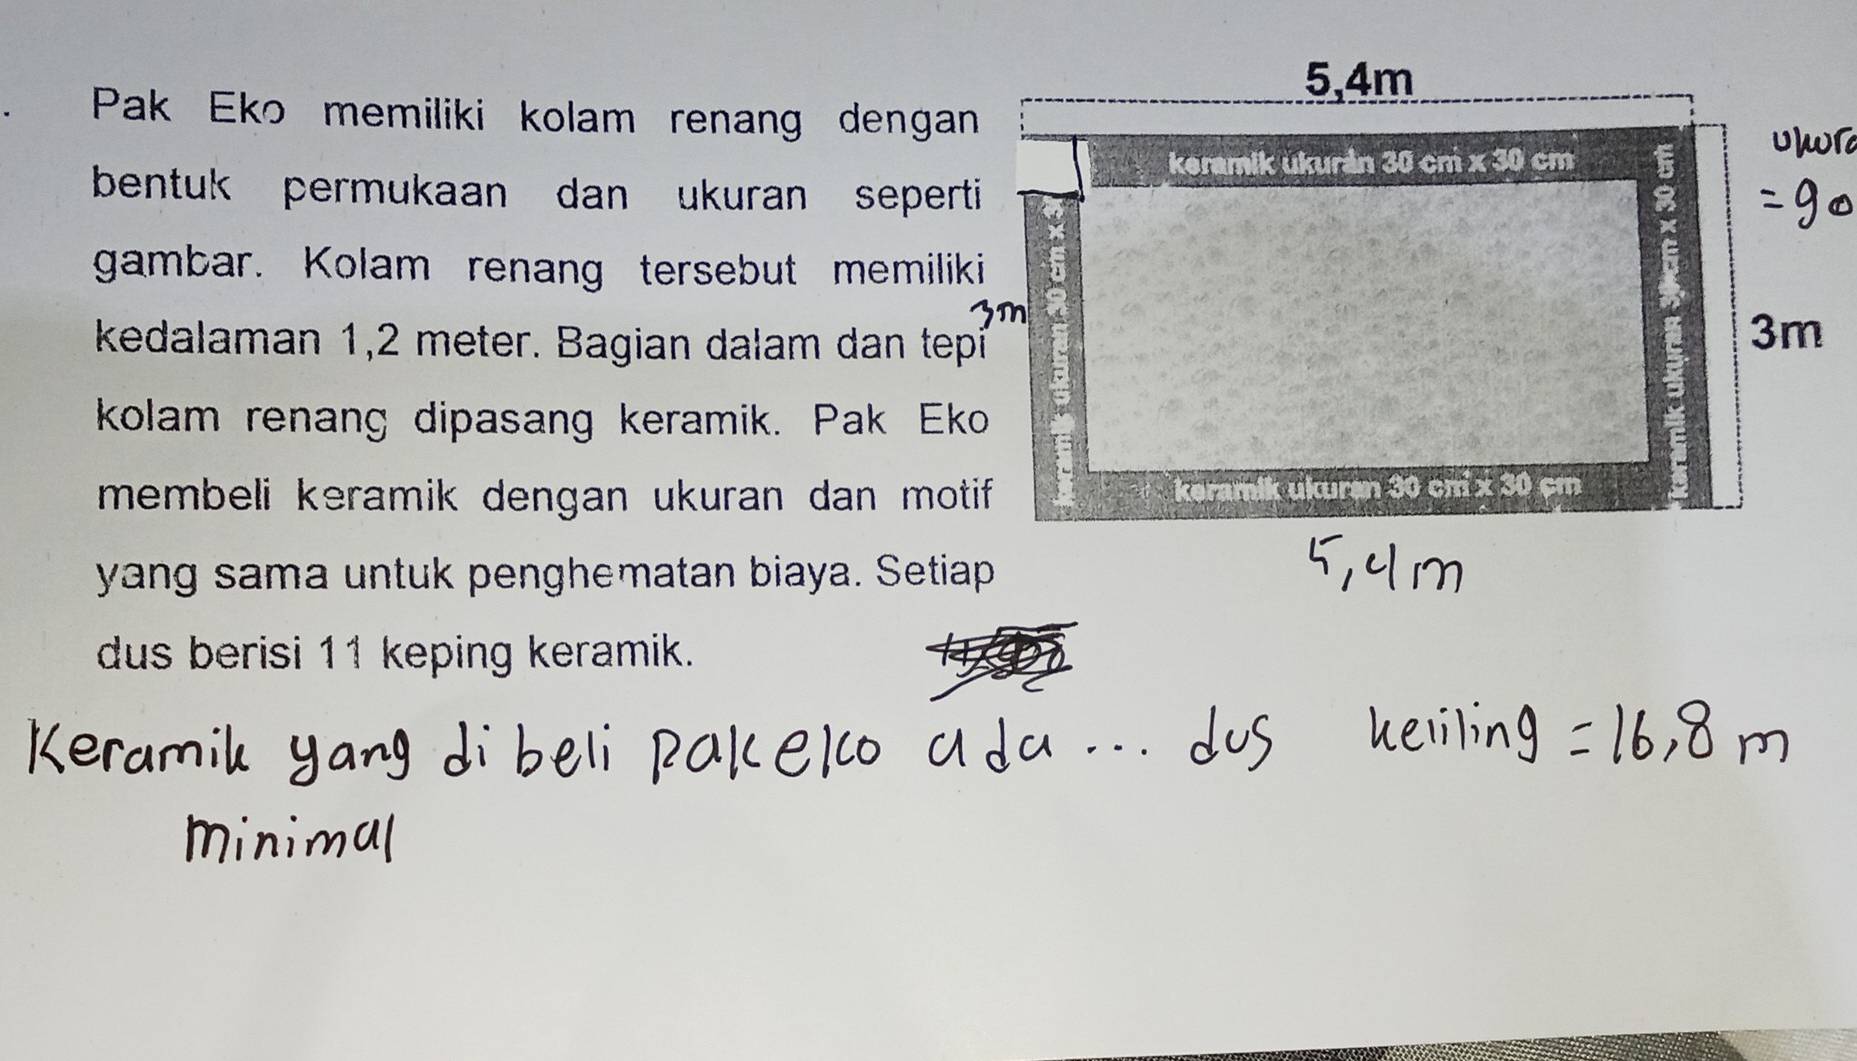 Pak Eko memiliki kolam renang dengan
bentuk permukaan dan ukuran seperti
gambar. Kolam renang tersebut memiliki
kedalaman 1,2 meter. Bagian dalam dan tepi
kolam renang dipasang keramik. Pak Eko
membeli keramik dengan ukuran dan motif
yang sama untuk penghematan biaya. Setiap
dus berisi 11 keping keramik.
5,4m
keramik ukuran 30 cm x 30 cm
keramik ukuran 30 cm x 3
keramik ukuran 30 cm x 30 cm
keramik ukuran 30 cm x 30 cm
3m
3m
5,4m
= 90
Keramik yang di beli pak eko ada ... dus
minimal
keliling = 16,8 m